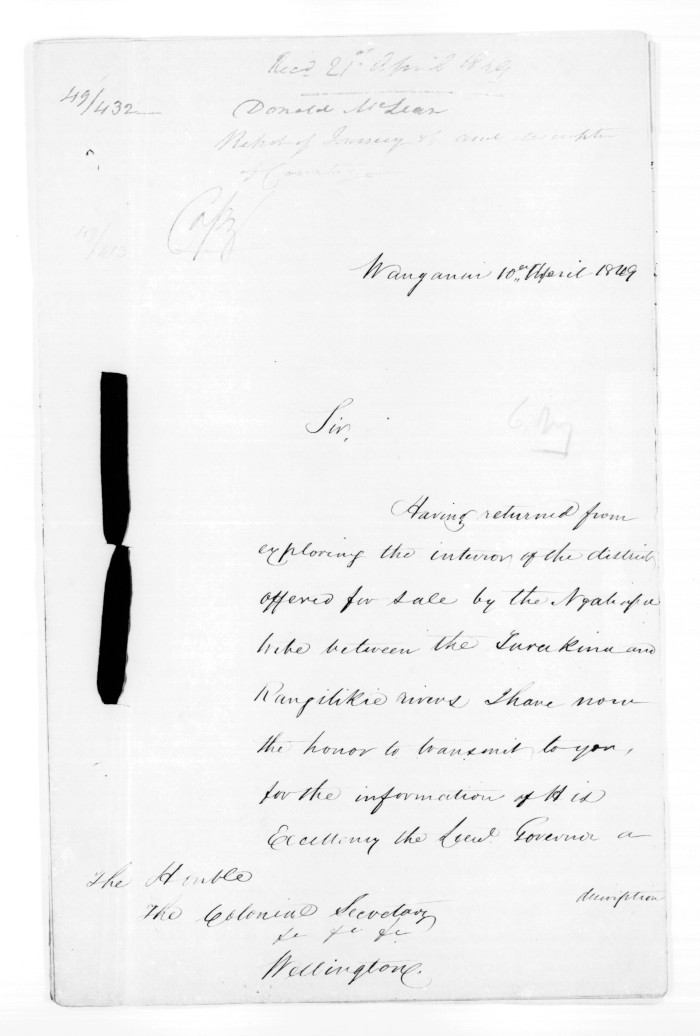 Recd 21st April 1849
49/432
Donald McLean
Report of Journey &
of Country
Copy
Wanganui 10th April 1849
Sir,
Having returned from
exploring the interior of the district
offered for sale by the Ngatiapa
tribe between the Turakina and
Rangitikie rivers I have now
the honor to transmit to you,
for the information of His
Excellency the Lieut. Governor a
description
The Honble
The Colonial Secretary
&c &c &c
Wellington.